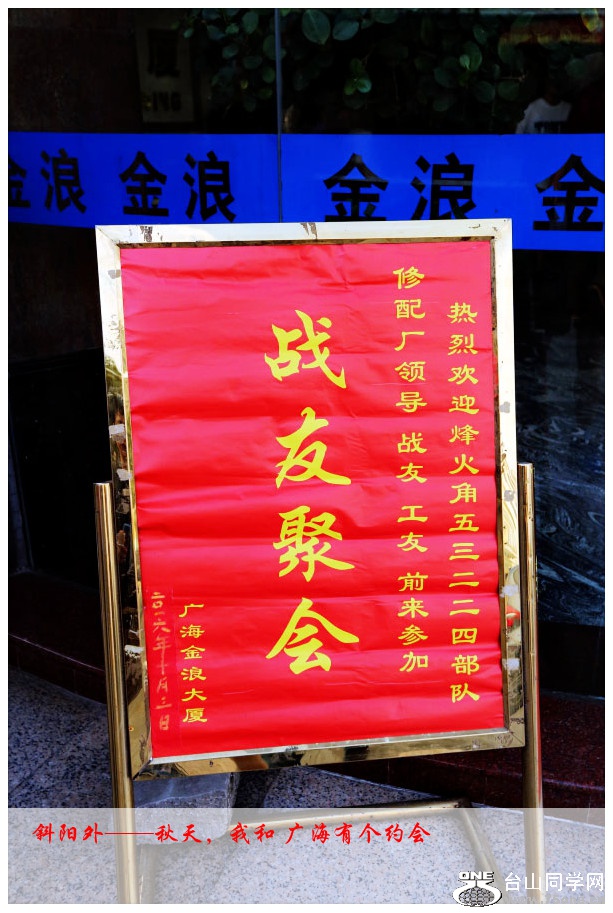 金浪 金浪 金浪 金浪 金
热烈欢迎烽火角五三二二四部队
修配厂领导 战友 工友 前来参加
战友聚会
广海金浪大厦
二〇一六年十月三日
斜阳外——秋天，我和 广海有个约会
ONE 台山同学网